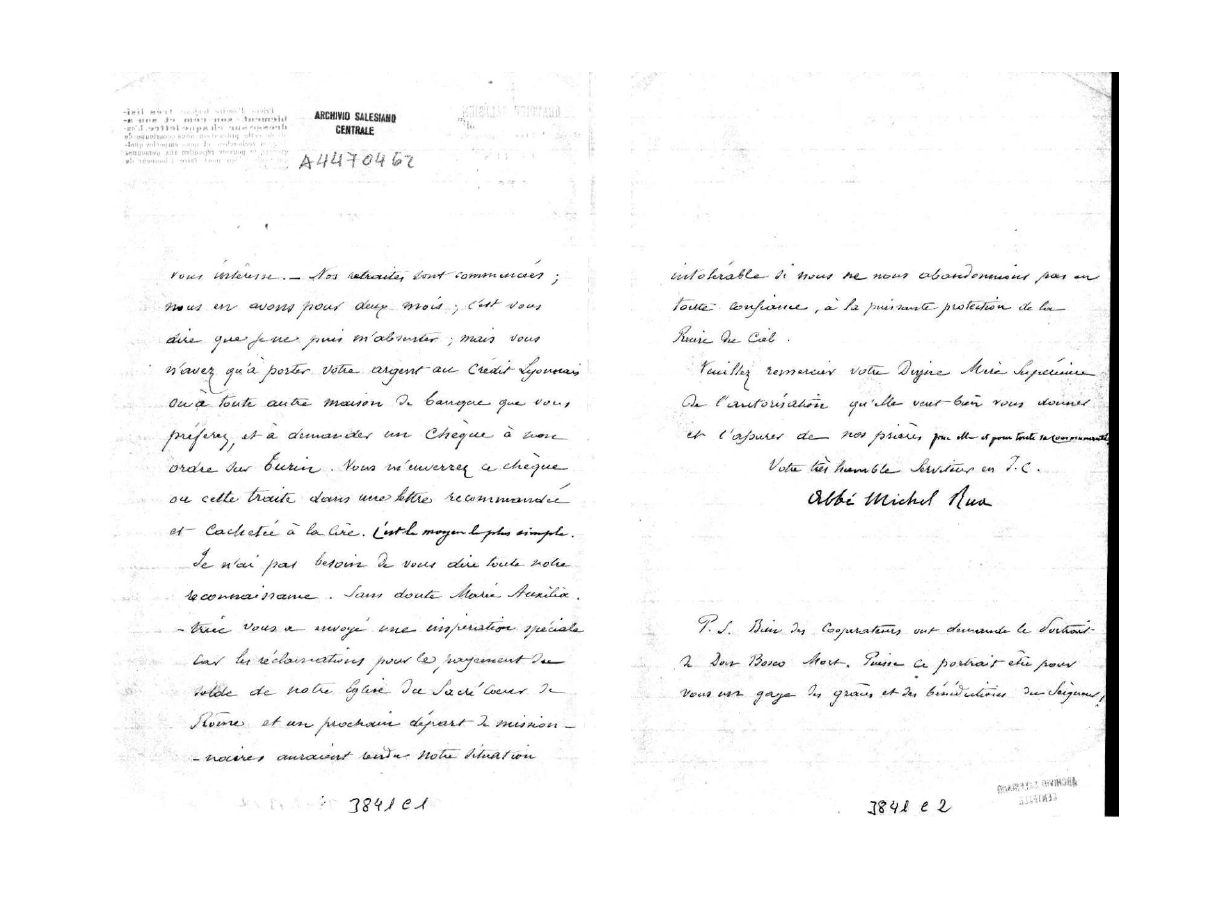 ARCHIVIO SALESIANO
CENTRALE
A4470462
vous intéresse. — Nos retraites sont commencées ;
nous en avons pour deux mois ; c'est vous
dire que je ne puis m'absenter ; mais vous
n'avez qu'à porter votre argent au Crédit Lyonnais
ou à toute autre maison de banque que vous
préferez, et à demander un chèque à mon
ordre sur Turin. Vous m'enverrez ce chèque
ou cette traite dans une lettre recommandée
et cachetée à la cire. C'est le moyen le plus simple.
Je n'ai pas besoin de vous dire toute notre
reconnaissance. Sans doute Marie Auxilia-
-trice vous a envoyé une inspiration spéciale
car les réclamations pour le payement du
solde de notre Eglise du Sacré Coeur de
Rome et un prochain départ de mission-
-naires auraient rendu notre situation
3841 C 1
intolérable si nous ne nous abandonnions pas en
toute confiance, à la puissante protection de la
Reine du Ciel.
Veuillez remercier votre Digne Mère Supérieure
de l'autorisation qu'elle veut bien vous donner
et l'assurer de nos prières pour elle et pour toute sa communauté
Votre très humble Serviteur en J. C.
Abbé Michel Rua
P. S. Bien des Coopérateurs ont demandé le Portrait
de Don Bosco Mort. Puisse ce portrait être pour
vous un gage des grâces et des bénédictions du Seigneur,
3841 C 2
ARCHIVIO SALESIANO
CENTRALE